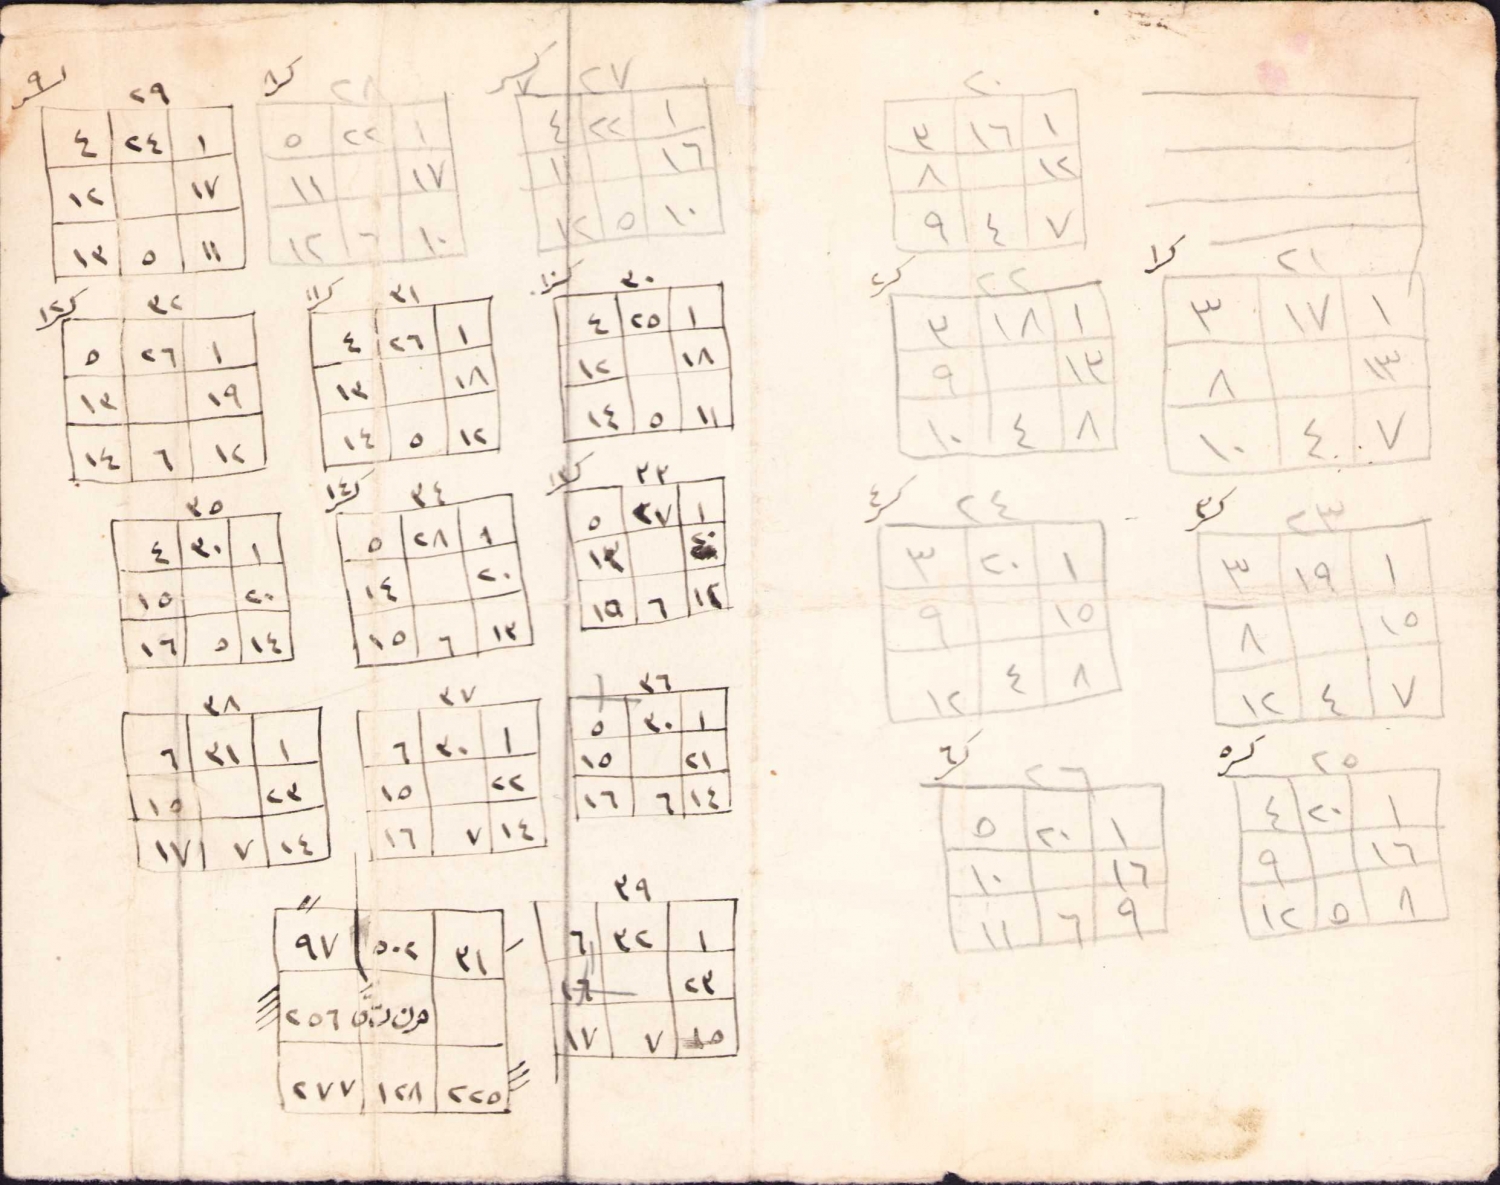 ٢٠
٣ ١٦ ١
٨ ١٢
٩ ٤ ٧
كرا ٢١
٣ ١٧ ١
٨ ١٣
١٠ ٤ ٧
كر٢ ٢٢
٣ ١٨ ١
٩ ١٣
١٠ ٤ ٨
كر٣ ٢٣
٣ ١٩ ١
٨ ١٥
١٢ ٤ ٧
كر٤ ٢٤
٣ ٢٠ ١
٩ ١٥
١٢ ٤ ٨
كر٥ ٢٥
٤ ٢٠ ١
٩ ١٦
١٢ ٥ ٨
كر٦ ٢٦
٥ ٢٠ ١
١٠ ١٦
١١ ٦ ٩
كسر٧ ٢٧
٤ ٢٢ ١
١٦
١٢ ٥ ١٠
كر٨ ٢٨
٥ ٢٢ ١
١١ ١٧
١٢ ٦ ١٠
كر٩ ٢٩
٤ ٢٤ ١
١٢ ١٧
١٣ ٥ ١١
كر١٠ ٣٠
٤ ٢٥ ١
١٢ ١٨
١٤ ٥ ١١
كر١١ ٣١
٤ ٢٦ ١
١٣ ١٨
١٤ ٥ ١٢
كر١٢ ٣٢
٥ ٢٦ ١
١٣ ١٩
١٤ ٦ ١٢
كر١٣ ٣٣
٥ ٢٧ ١
١٣
١٥ ٦ ١٢
كر١٤ ٣٤
٥ ٢٨ ١
١٤ ٢٠
١٥ ٦ ١٣
٣٥
٤ ٣٠ ١
١٥ ٢٠
١٦ ٥ ١٤
٣٦
٥ ٣٠ ١
١٥ ٢١
١٦ ٦ ١٤
٣٧
٦ ٣٠ ١
١٥ ٢٢
١٦ ٧ ١٤
٣٨
٦ ٣١ ١
١٥ ٢٣
١٧ ٧ ١٤
٣٩
٦ ٣٢ ١
١٦ ٢٣
١٧ ٧ ١٥
٩٧ ٥٠٢ ٣١
٢٥٦
٢٧٧ ١٢٨ ٢٢٥